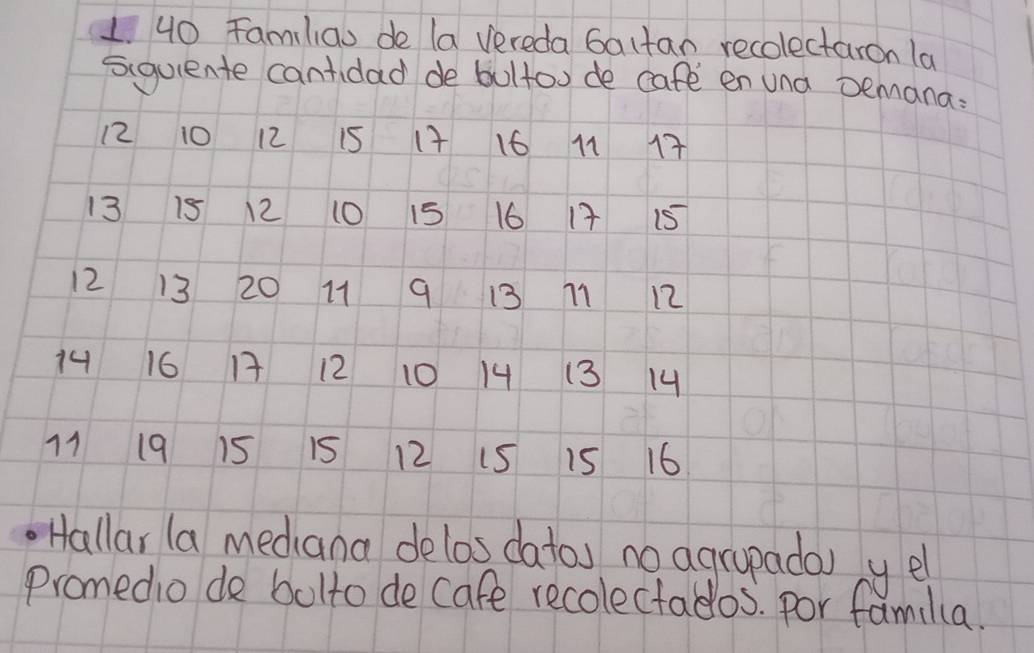 1. 40 Familias de la Vereda Gaitan recolectaron la
siguiente cantidad de bultos de café en una semana:
12 10 12 15 17 16 11 17
13 15 12 10 15 16 17 15
12 13 20 11 9 13 11 12
14 16 17 12 10 14 13 14
11 19 15 15 12 15 15 16
• Hallar la mediana delos datos no agrupados y el
Promedio de bulto de cafe recolectados. por familia.